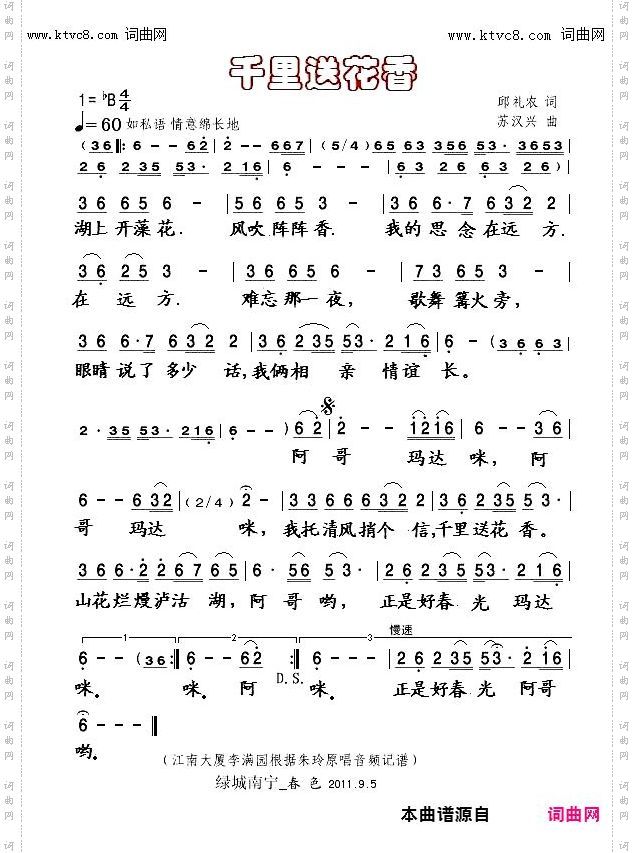 www.ktvc8.com 词曲网
www.ktvc8.com 词曲网
千里送花香
1=♭B 4/4
♩=60 如私语 情意绵长地
邱礼农 词
苏汉兴 曲
(36‖: 6 - - 62 | 2 - - 667 | (5/4) 65 63 356 5653 |
2 6 2 35 53· 2 16 | 6 - - - | 3 6 3 65 63 26) |
3 6 6 5 6 - | 5 6 6 5 3 - | 3 6 6·7 6 32 2 |
湖上开藻花. 风吹阵阵香. 我的思念在远方.
3 6 2 5 3 - | 3 3 6 5 6 - | 7 3 6 5 3 - |
在远方. 难忘那一夜, 歌舞篝火旁,
3 6 6·7 6 32 2 | 3 6 2 35 53· 2 16 | 6 - (3 6 6 3 |
眼晴说了多少话,我俩相亲情谊长。
2· 35 53· 216 | 6 - - - ) 6 2 | 2 - - 1216 | 6 - - 3 6 |
阿哥玛达咪,阿
6 - - 6 32 | (2/4) 2 - | 3 6 3 6 6 32 2 | 3 6 2 35 5 3 |
哥玛达咪,我托清风捎个信,千里送花香。
3 6 6·2 2 67 6 5 | 6 - 56 53 | 3 - - - | 2 6 2 35 5 3 2 16 |
山花烂熳泸沽湖,阿哥哟,正是好春光玛达
1 2 3 慢速
6 - - (36 :‖ 6 - - 62 :‖ 6 - - - | 2 6 2 35 53· 2 16 |
咪. 咪. 阿 D.S. 咪. 正是好春光阿哥
6 - - - ‖
哟.
(江南大厦李满园根据朱玲原唱音频记谱)
绿城南宁_春色 2011.9.5
本曲谱源自 词曲网